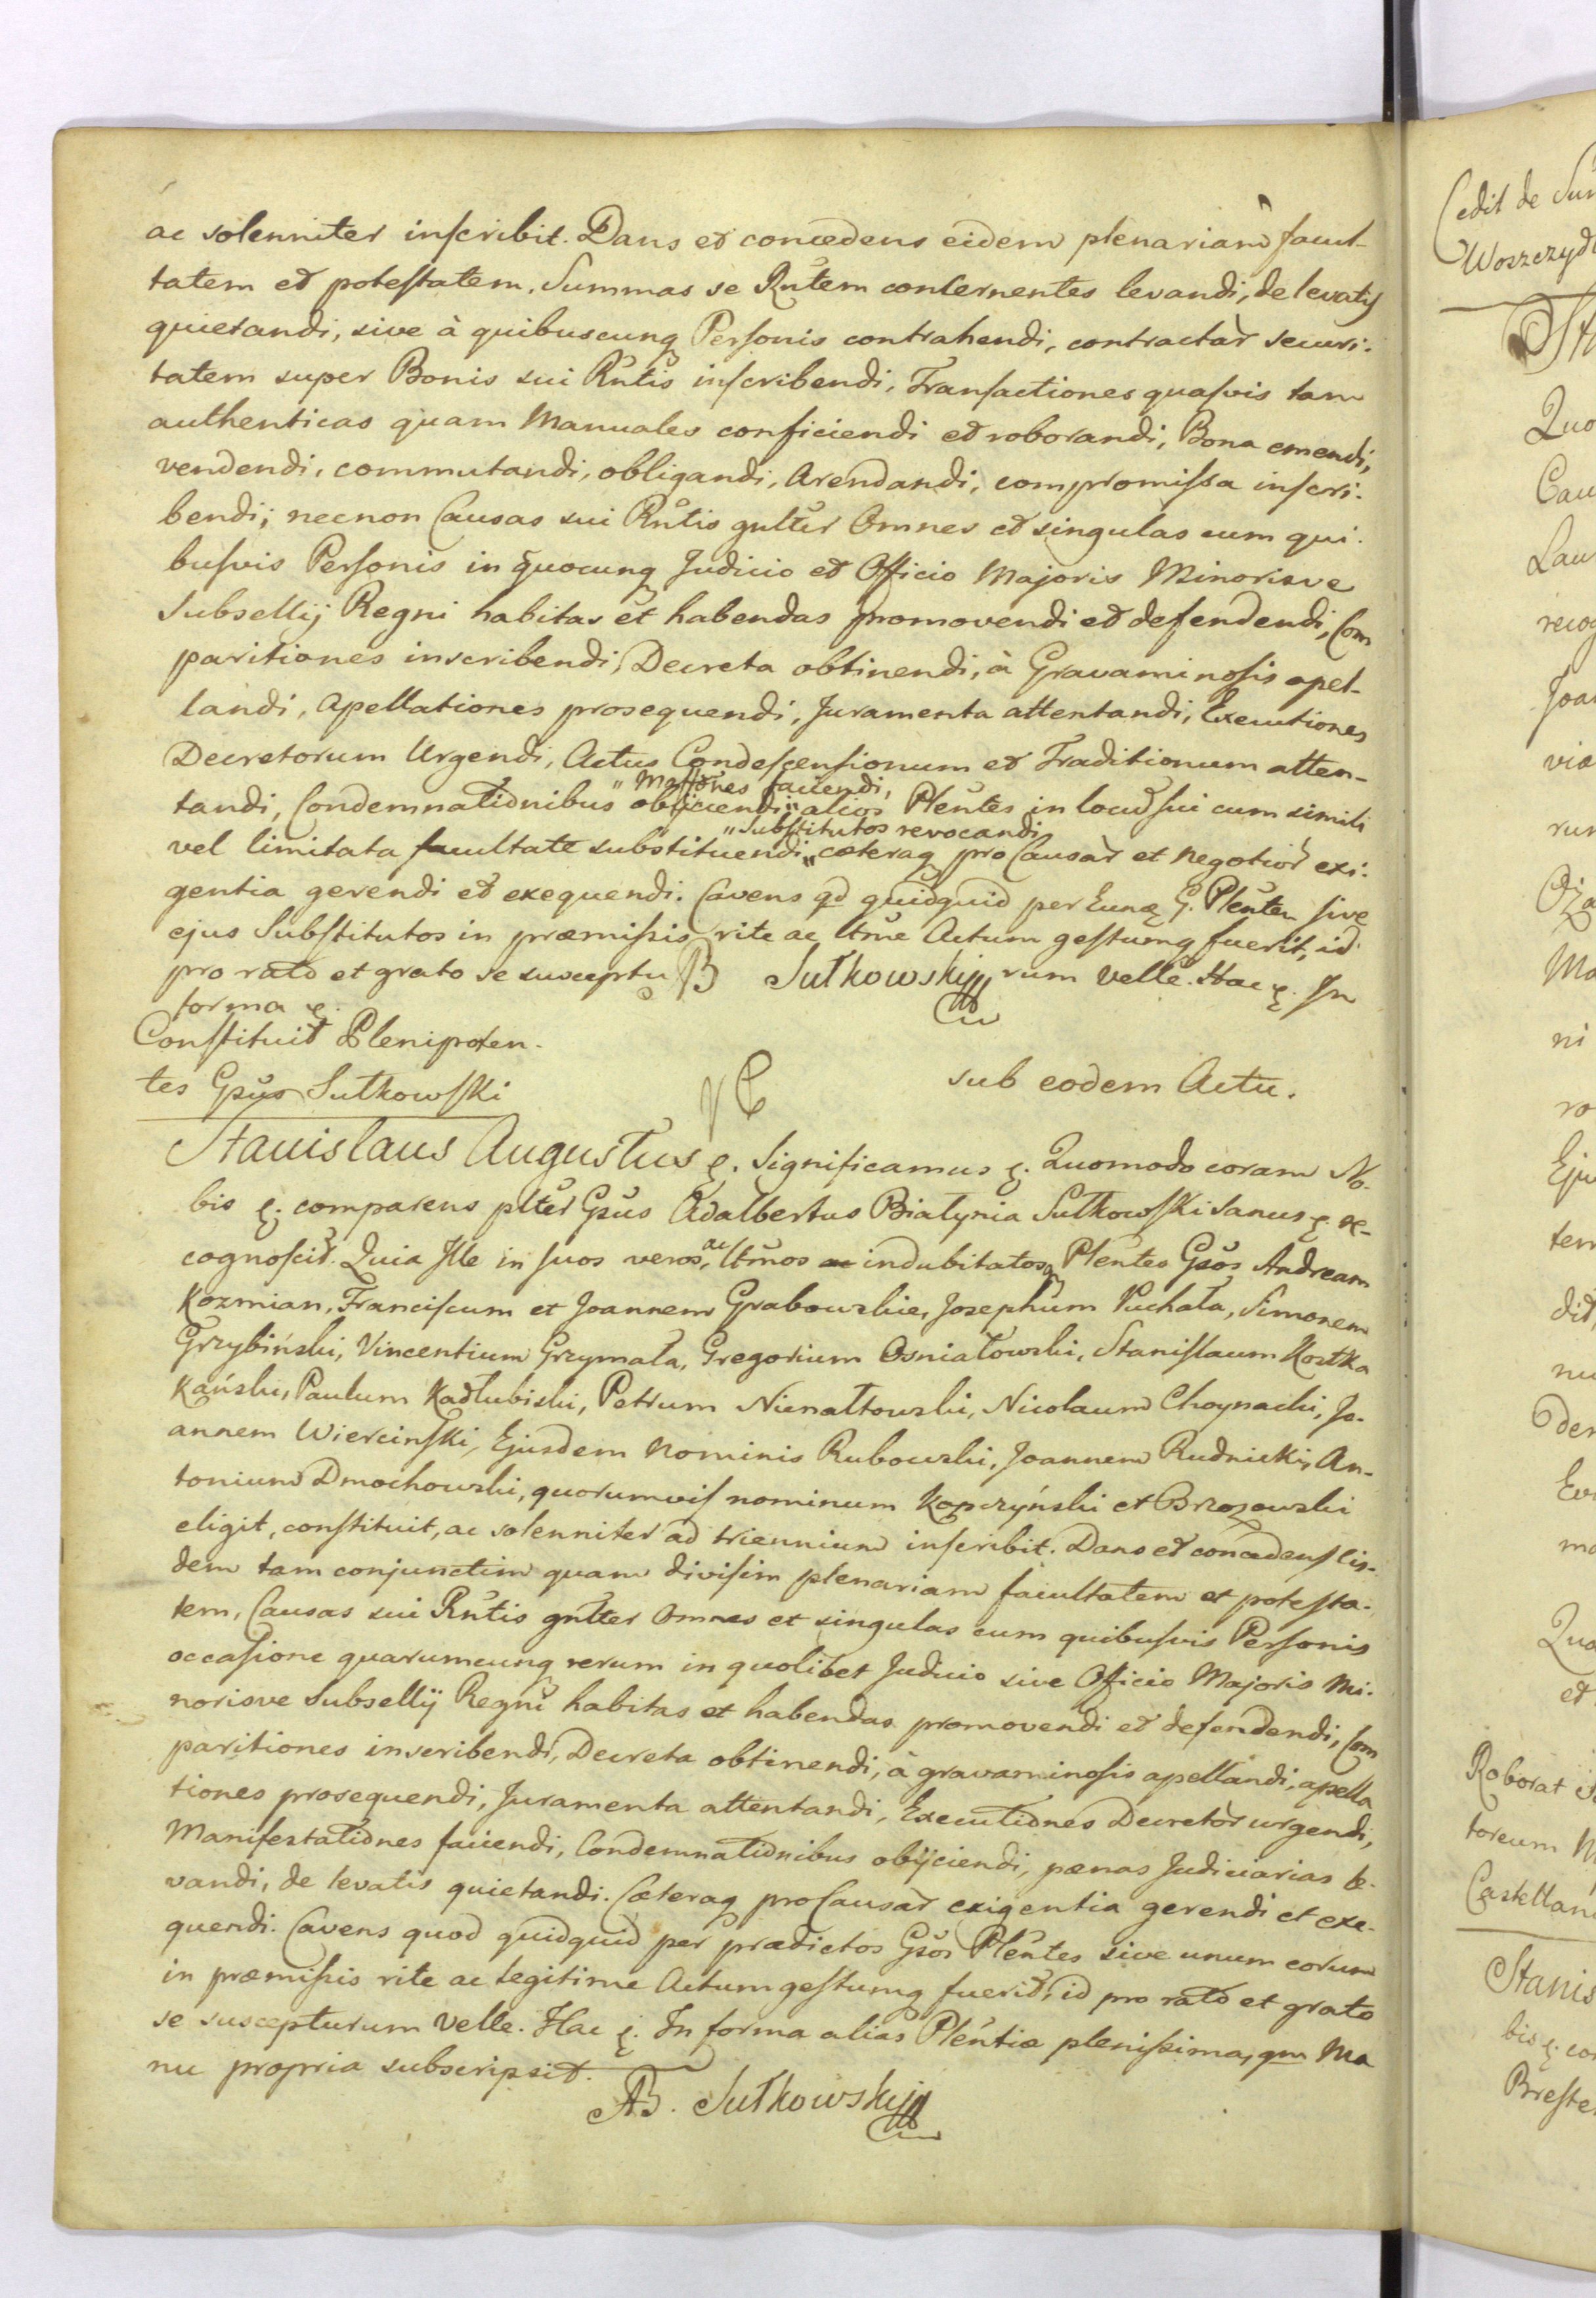 ac solenniter inscribit. Dans et concedens eidem plenariam facul-
tatem et potestatem, Summas se Rntem concernentes levandi, de levatis
quietandi, sive à quibuscunq Personis contrahendi, contractar securi-
tatem super Bonis sui Rntis inscribendi, Transactiones quasvis tam
authenticas quam Manuales conficiendi et roborandi, Bona emendi,
vendendi, commutandi, obligandi, Arendandi, compromissa inscri-
bendi; necnon Causas sui Rntis gnlter Omnes et singulas cum qui-
busvis Personis in quocunq Judicio et Officio Majoris Minorisve
Subsellij Regni habitas et habendas promovendi et defendendi, Com
paritiones inscribendi, Decreta obtinendi, à Gravaminosis apel-
landi, Apellationes prosequendi, Juramenta attentandi, Executiones
Decretorum Urgendi, Actus Condescensionum et Traditionum atten-
" Mafftones faciendi,
tandi, Condemnationibus obijciendi " alios Plentes in locum sui cum simili
" substitutos revocandi
vel limitata facultate substituendi " caeteraq pro Causar et negotior exi-
gentia gerendi et exequendi. Cavens qd quidquid per Eunq G. Plentem sive
ejus Substitutos in praemissis rite ac ltme Actum gestumq fuerit, id
pro rato et grato se susceptu B Sutkowski rum velle. Hac &. In
forma &.
Constituit Plenipoten-
tes Gsus Sutkowski
sub eodem Actu.
Stanislaus Augustus &. Significamus &. Quomodo coram No-
bis &. comparens plter Gsus Adalbertus Białynia Sutkowski sanus &. re-
cognoscit. Quia Ille in suos veros, ac ltmos ac indubitatosq Plentes Gsos Andream
Kozmian, Franciscum et Joannem Grabowskie, Josephum Puchała, Simonem
Grzybiński, Vincentium Grzymała, Gregorium Osniałowski, Stanislaum Kostka
Kański, Paulum Kadłubiski, Petrum Nienałtowski, Nicolaum Choynacki, Jo-
annem Wiercinski, Ejusdem Nominis Rubowski, Joannem Rudnicki, An-
tonium Dmochowski, quorumvis nominum Kopczyński et Brzozowski
eligit, constituit, ac solenniter ad triennium inscribit. Dans et concedens iis-
dem tam conjunctim quam divisim plenariam facultatem et potesta-
tem, Causas sui Rntis gnlter Omnes et singulas cum quibusvis Personis
occasione quarumcunq rerum in quolibet Judicio sive Officio Majoris Mi-
norisve Subsellij Regni habitas et habendas promovendi et defendendi, Com
paritiones inscribendi, Decreta obtinendi, à gravaminosis apellandi, apella
tiones prosequendi, Juramenta attentandi, Executiones Decretor urgendi,
Manifestationes faciendi, Condemnationibus obijciendi, paenas Judiciarias le-
vandi, de levatis quietandi. Caeteraq pro Causar exigentia gerendi et exe-
quendi. Cavens quod quidquid per praedictos Gsos Plentes sive unum eorum
in praemissis rite ac legitime Actum gestumq fuerit, id pro rato et grato
se suscepturum velle. Hac &. In forma alias Plentiae plenissima, qm Ma
nu propria subscripsit.
AB. Sutkowski
Cedit de Sum
Quo
Cau
Lau
recog
Joan
viae
rum
Mo
ni
ro
Eju
tem
dit
nu
den
mo
Quo
et
Roborat
toreum
Castellan
Stanis
bis &. co
Breste